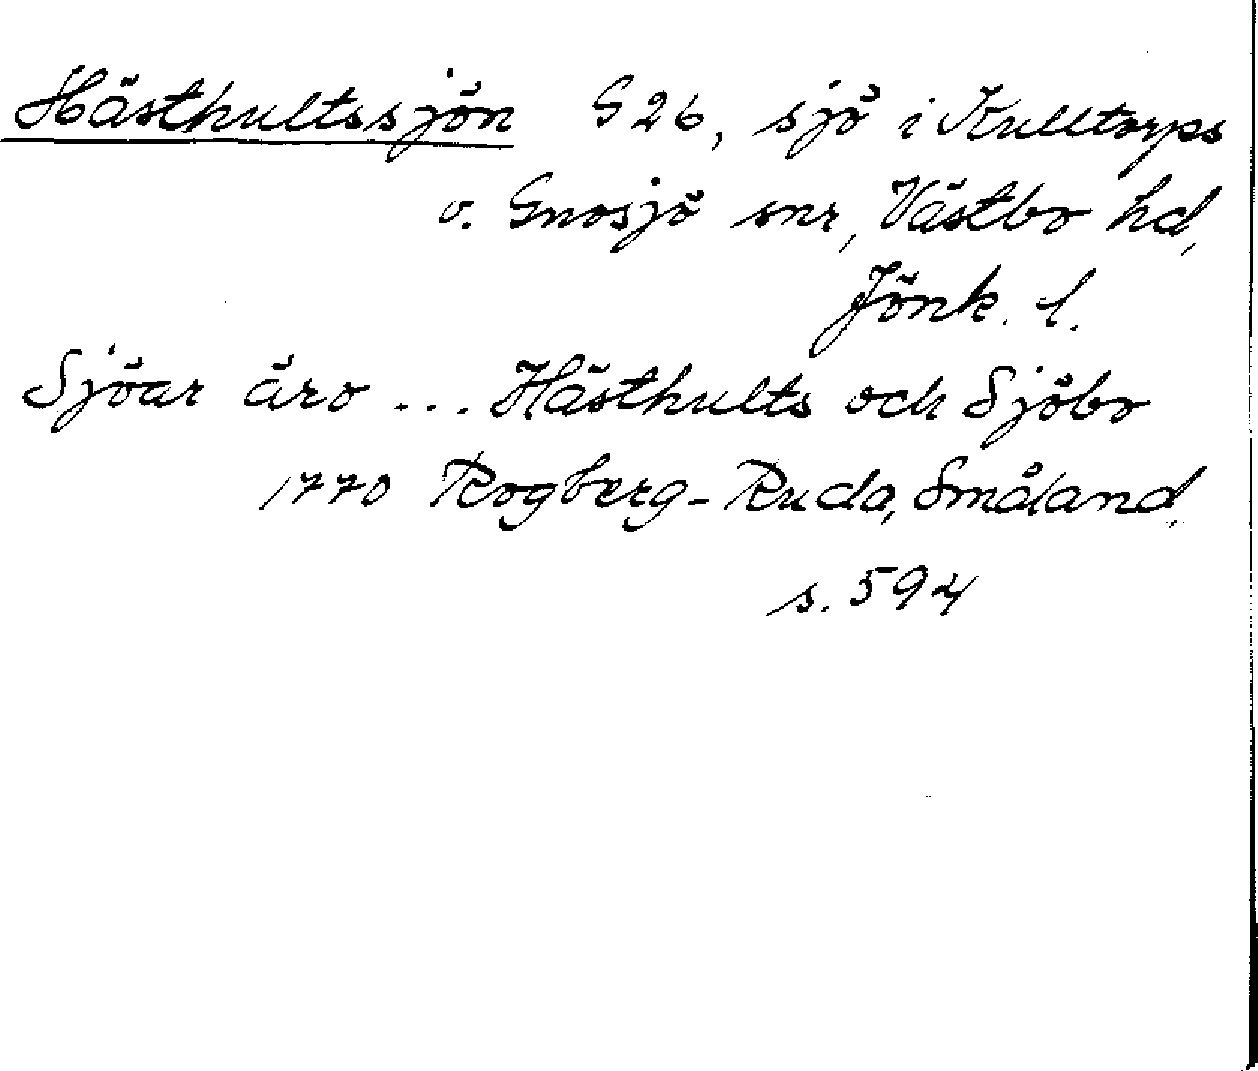 Hästhultssjön G26, sjö i Kulltorps
o. Gnosjö snr, Västbo hd,
Jönk. l.
Sjöar äro ... Hästhults och Sjöbo
1770 Rogberg-Ruda, Småland,
s. 594